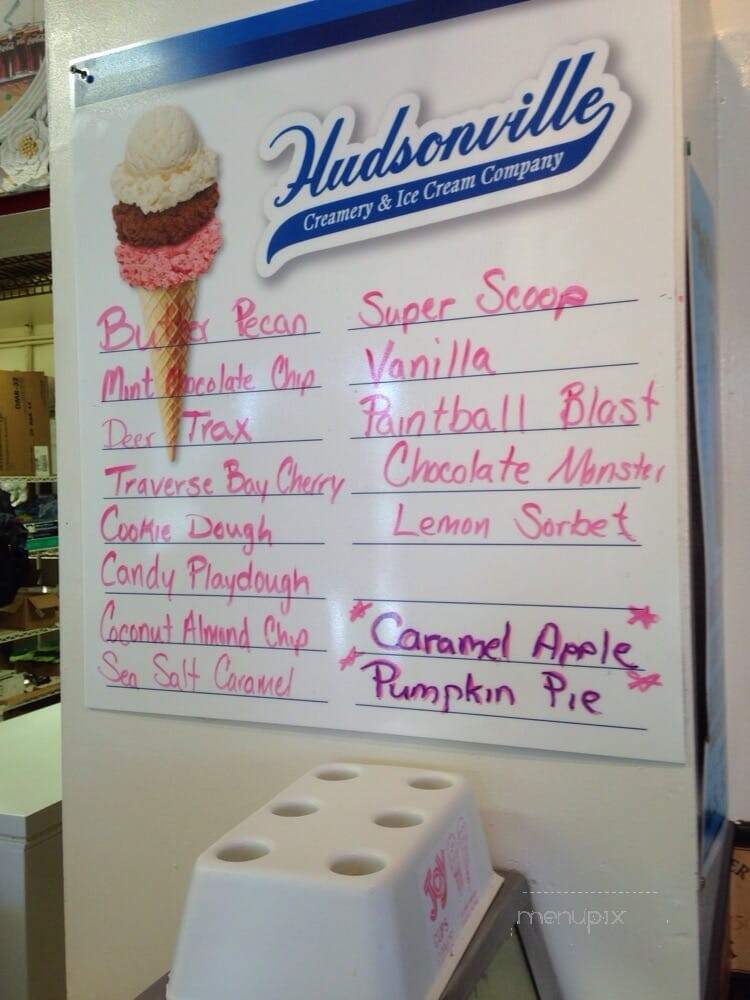 Hudsonville
Creamery & Ice Cream Company
Butter Pecan
Mint Chocolate Chip
Deer Trax
Traverse Bay Cherry
Cookie Dough
Candy Playdough
Coconut Almond Chip
Sea Salt Caramel
Super Scoop
Vanilla
Paintball Blast
Chocolate Monster
Lemon Sorbet
* Caramel Apple *
* Pumpkin Pie *
JOY
CUPS
menupix